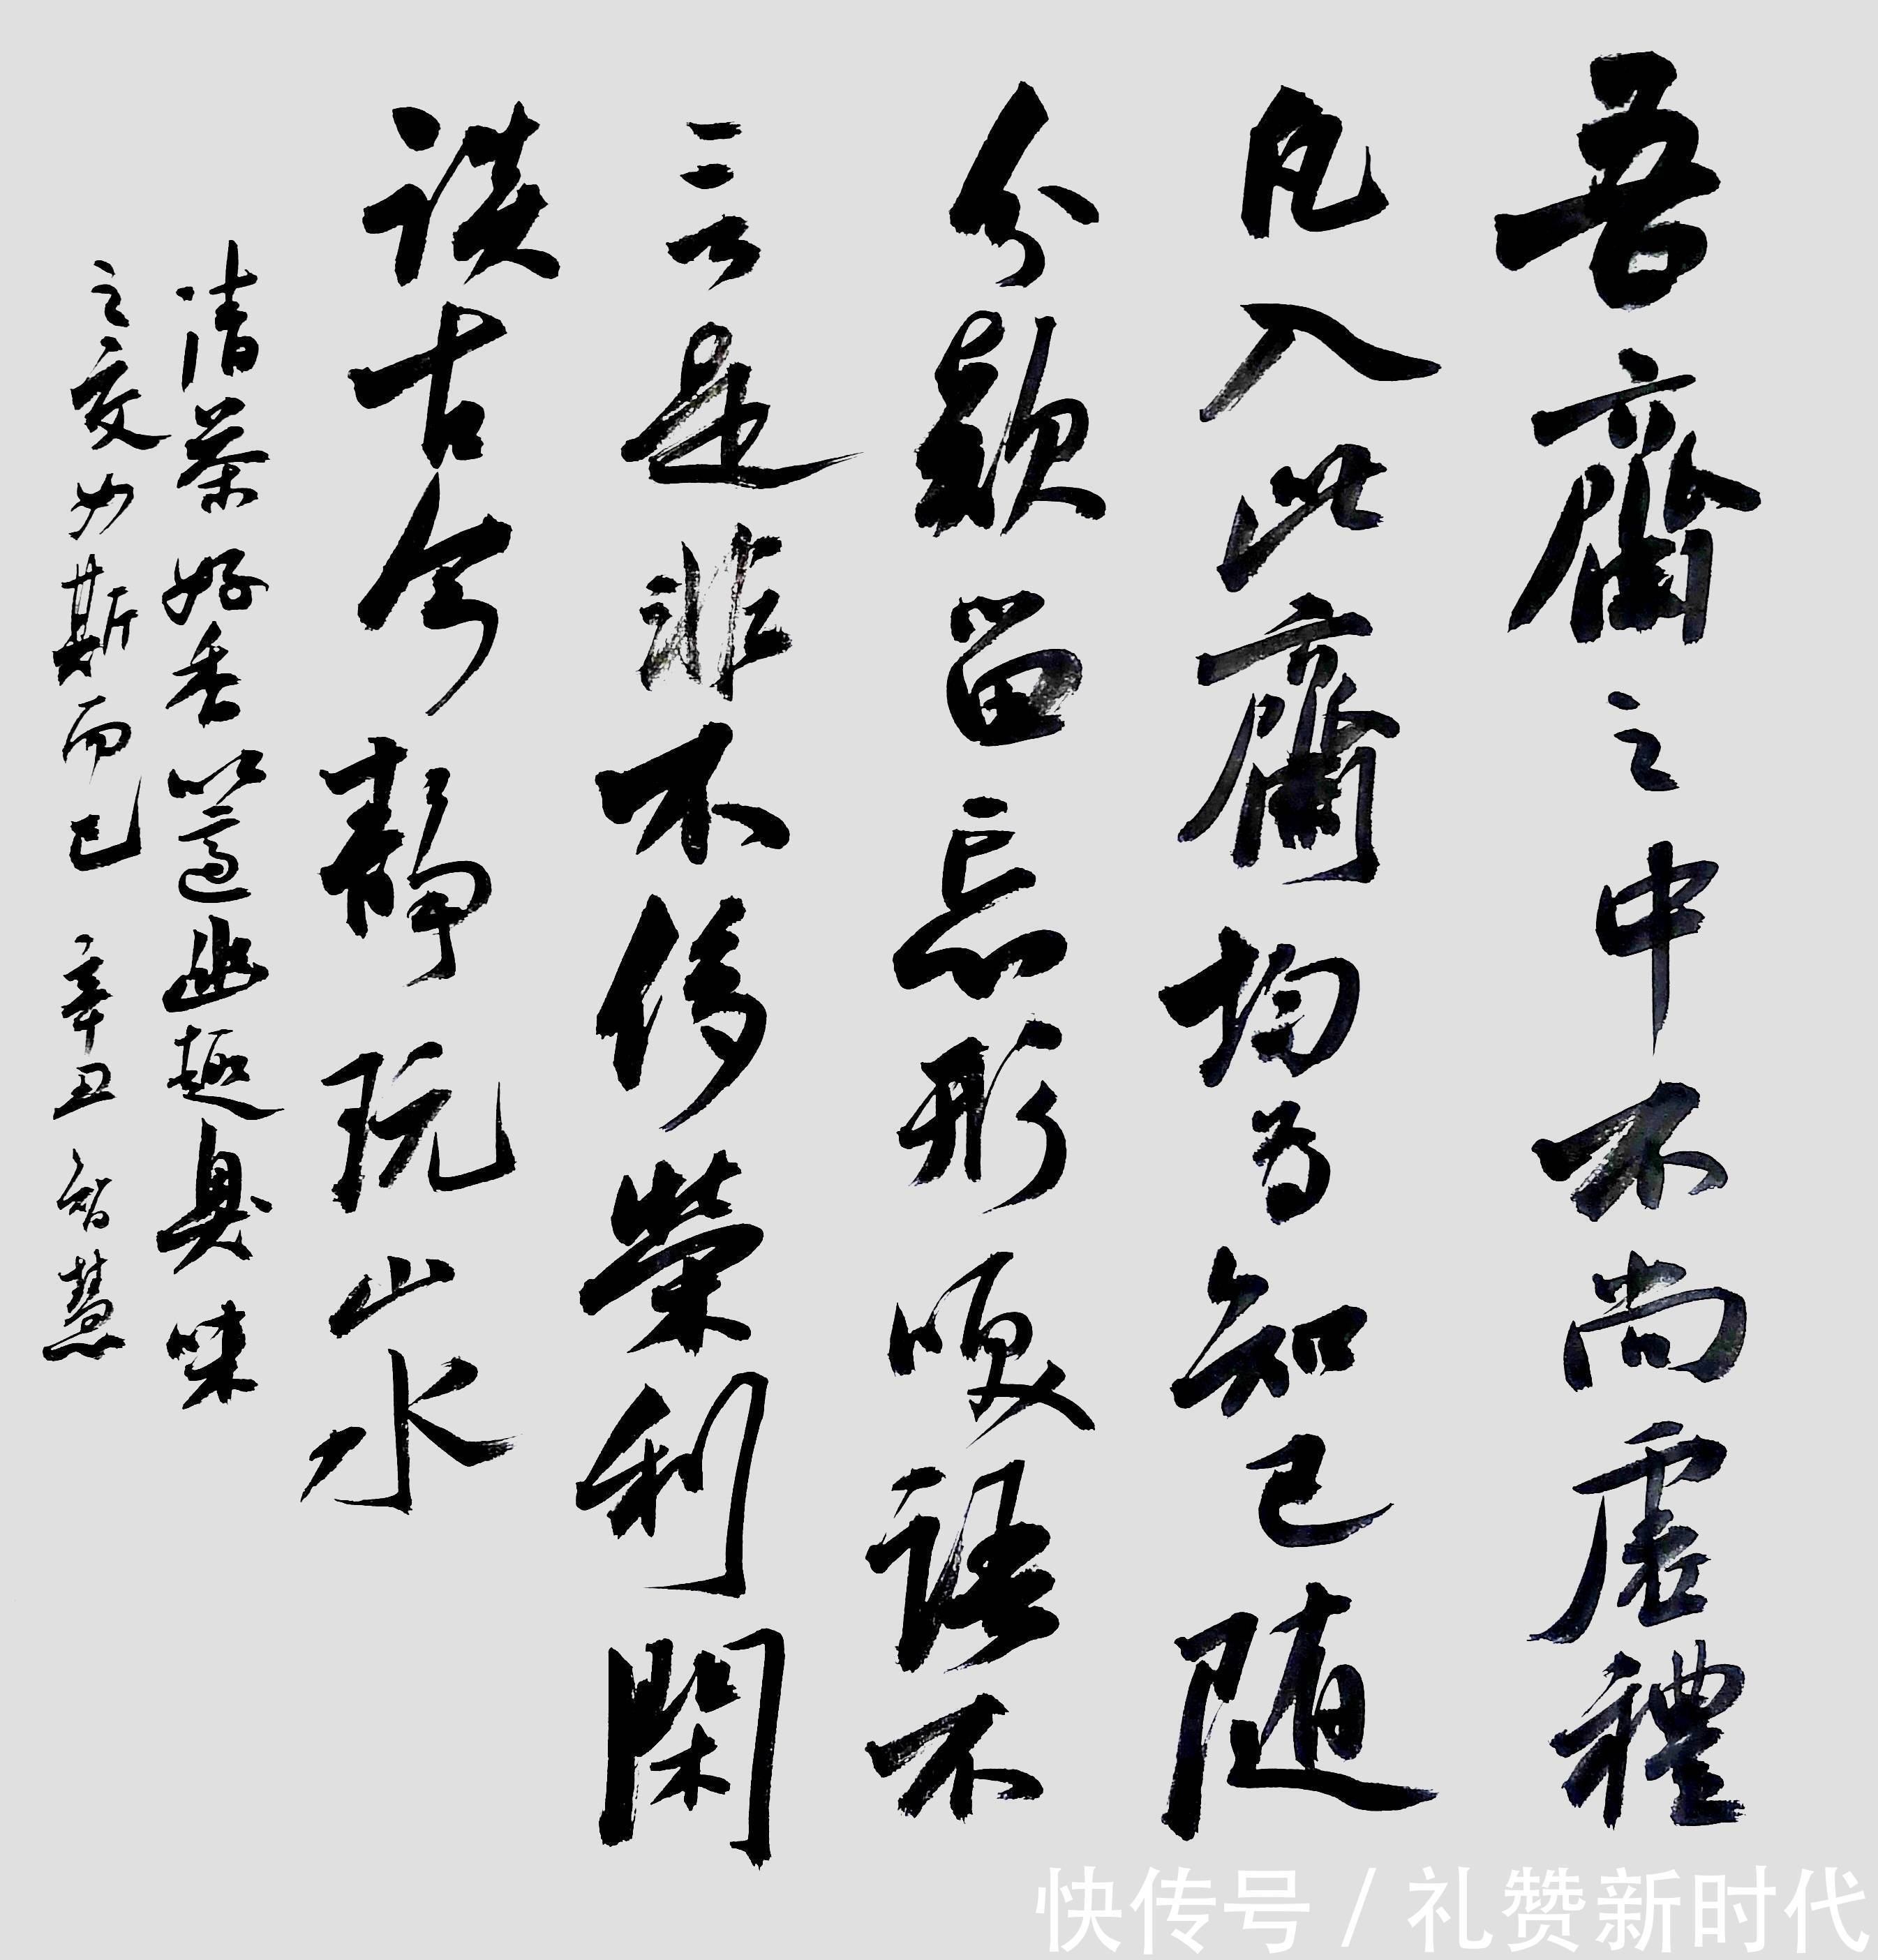 吾齋之中不尚虛禮
凡入此齋均为知己随
分款留忘形咲語不
言是非不侈榮利閑
談古今靜玩山水
清茶好香以適幽趣臭味
之交如斯而已 辛丑 智慧
快传号 / 礼赞新时代